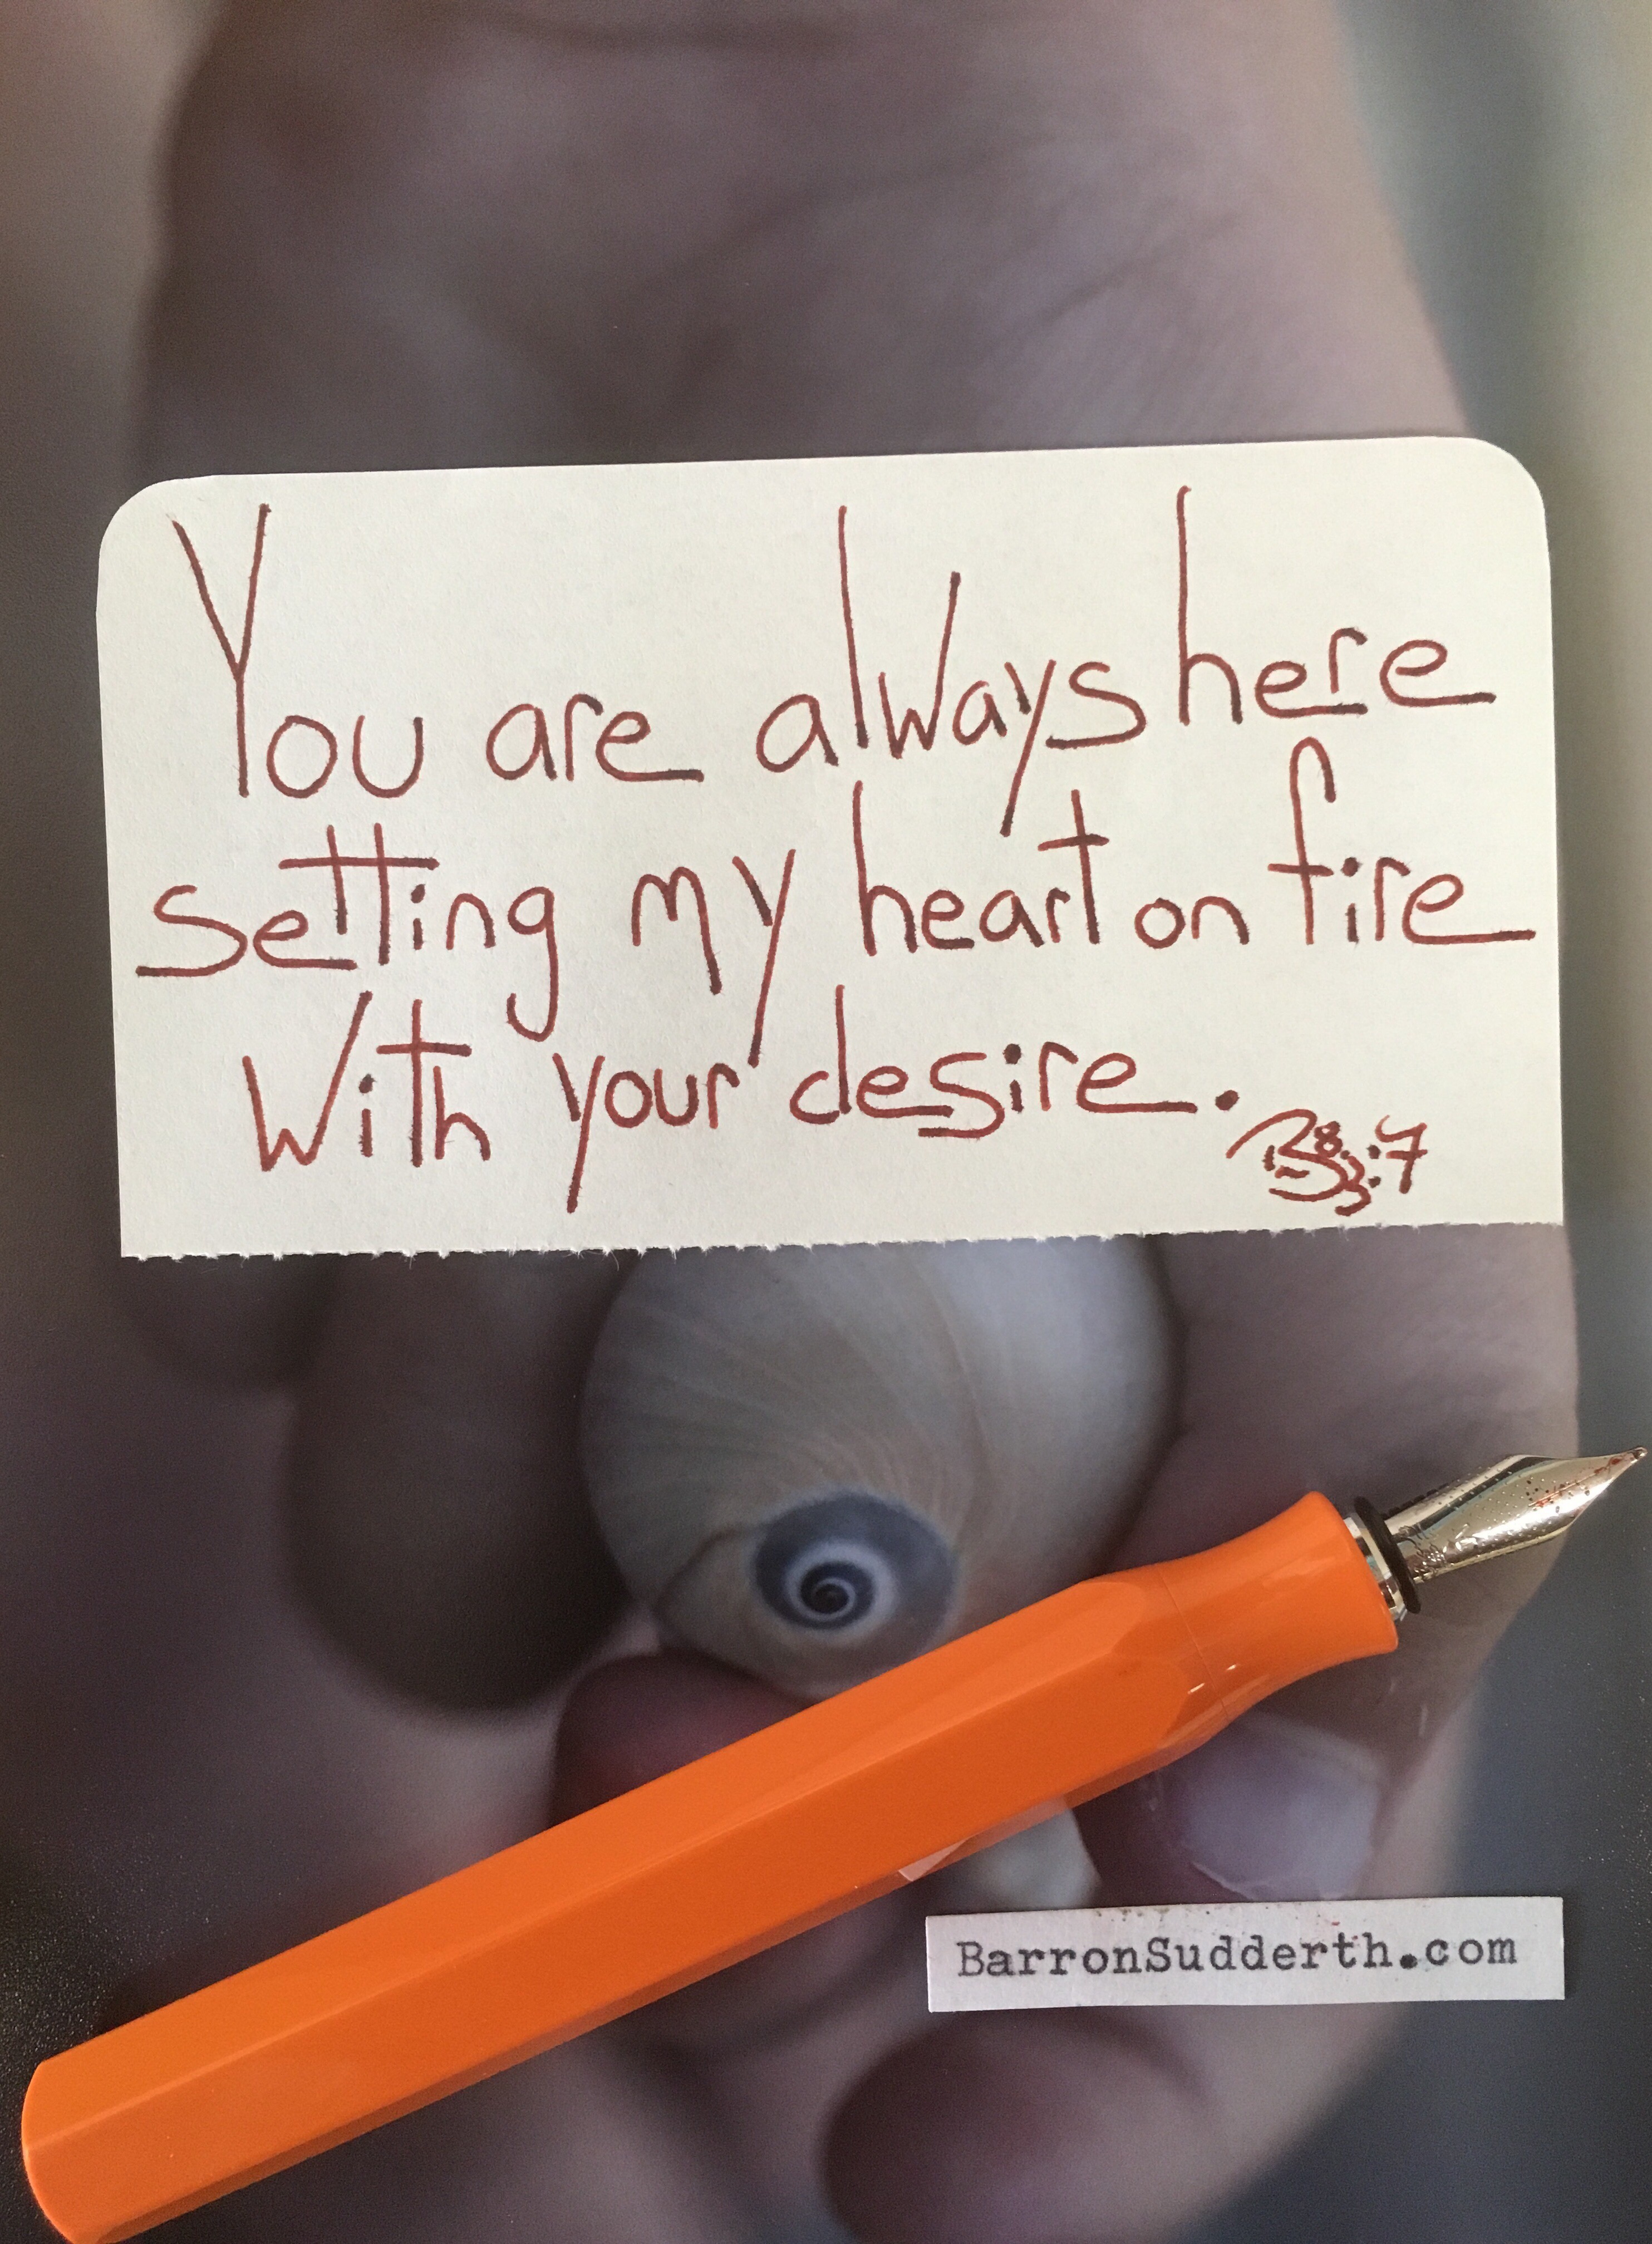 You are always here
setting my heart on fire
With your desire.
BarronSudderth.com